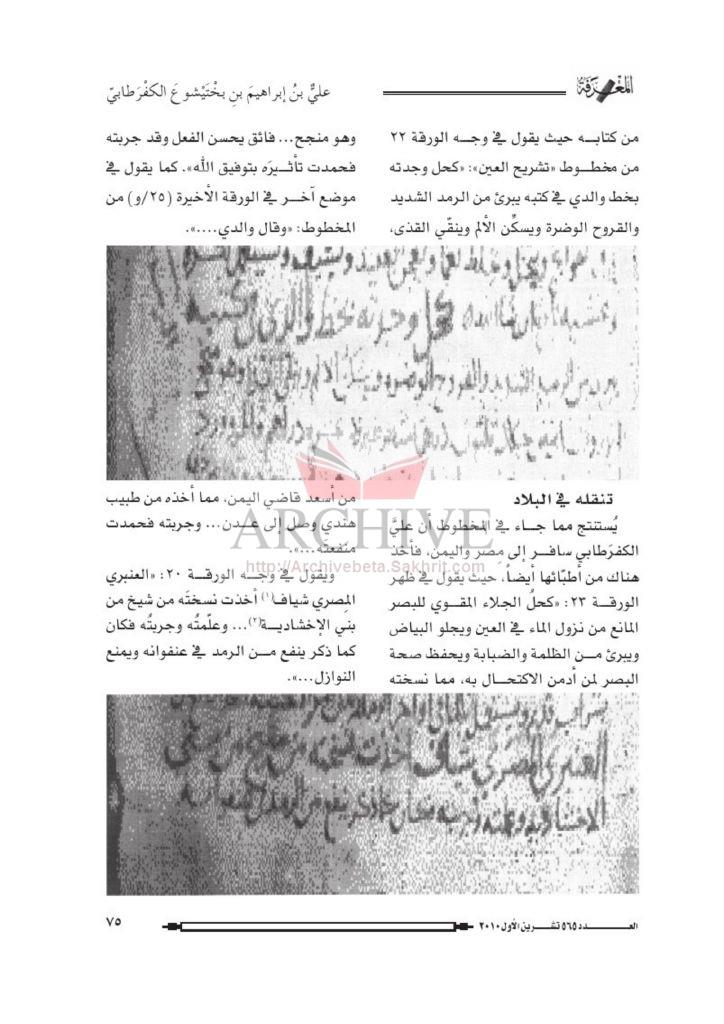 المعرفة
عليُّ بنُ إبراهيمَ بنِ بخْتَيْشوعَ الكفْرَطابيّ
من كتابه حيث يقول في وجه الورقة ٢٢
من مخطوط «تشريح العين»: «كحل وجدته
بخط والدي في كتبه يبرئ من الرمد الشديد
والقروح الوضرة ويسكِّن الألم وينقّي القذى،
وهو منجح... فائق يحسن الفعل وقد جربته
فحمدت تأثيرَه بتوفيق الله». كما يقول في
موضع آخر في الورقة الأخيرة (٢٥/و) من
المخطوط: «وقال والدي....».
كحل وجدته بخط والدي في كتبه
تنقله في البلاد
يُستنتج مما جاء في المخطوط أن عليَّ
الكفرَطابي سافر إلى مصر واليمن، فأخذ
هناك من أطبّائها أيضاً، حيث يقول في ظهر
الورقة ٢٣: «كحلُ الجلاء المقوي للبصر
المانع من نزول الماء في العين ويجلو البياض
ويبرئ من الظلمة والضبابة ويحفظ صحة
البصر لمن أدمن الاكتحال به، مما نسخته
من أسعد قاضي اليمن، مما أخذه من طبيب
هندي وصل إلى عدن... وجربته فحمدت
منفعته...».
ويقول في وجه الورقة ٢٠: «العنبري
المِصري شياف(١) أخذت نسختَه من شيخ من
بني الإخشادية(٢)... وعلّمتُه وجربتُه فكان
كما ذكر ينفع من الرمد في عنفوانه ويمنع
النوازل...».
ARCHIVE
http://Archivebeta.Sakhrit.com
العنبري المصري شياف أخذت نسخته من شيخ من بني
العدد ٥٦٥ تشرين الأول ٢٠١٠
٧٥